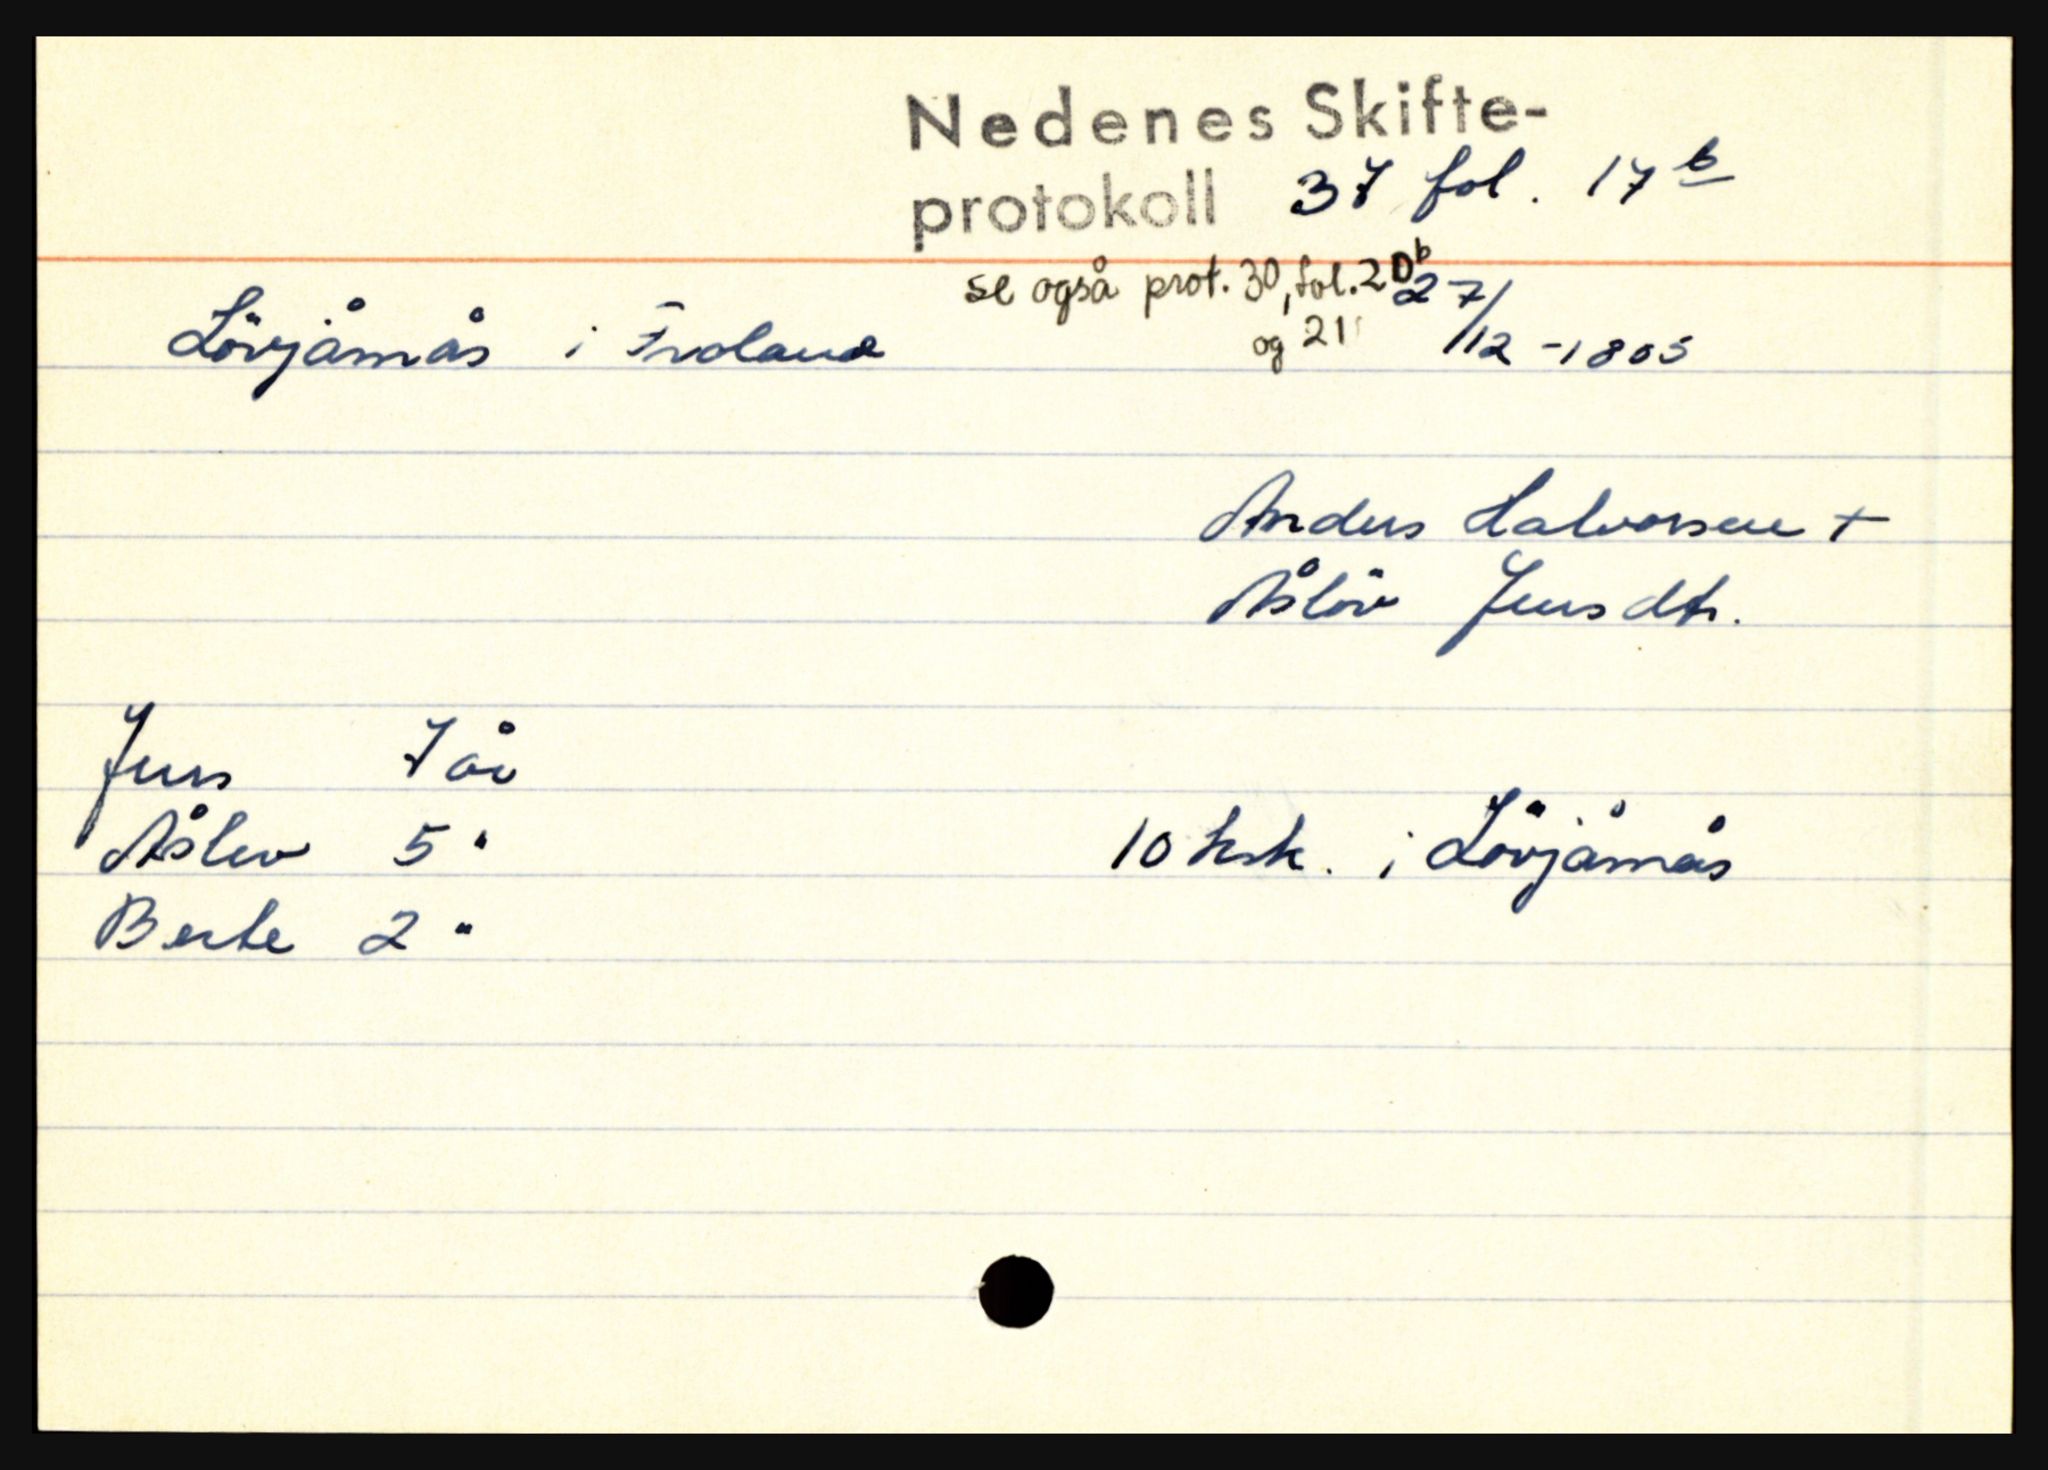 Nedenes Skifte-
protokoll 37 fol. 17 b
se også prot. 30, fol. 20b
og 21
27/12 - 1805
Lövjåmås i Froland
Anders Halvorsen +
Åslöv Jensdtr.
Jens 7 år
Åslev 5 "
Berte 2 "
10 ksk. i Lövjåmås